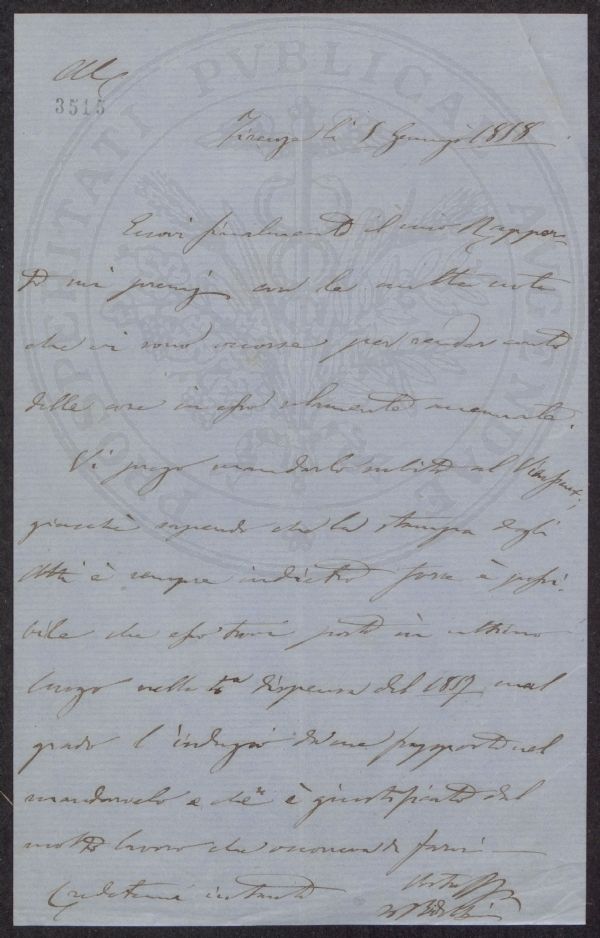 3515
Firenze li 8 Gennajo 1858.
Eccovi finalmente il mio Rappor-
to sui premj con le molte note
che vi sono occorse per render conto
delle cose in esso
Vi prego mandarlo subito al
giacchè sapendo che la stampa degli
Atti è sempre indietro forse è possi-
bile che esso trovi posto in ultimo
luogo nella 4a dispensa del 1857, mal
grado l'indugio da me frapposto nel
mandarvelo e che è giustificato dal
molto lavoro che occorreva di farvi —
Credetemi intanto
Vostro